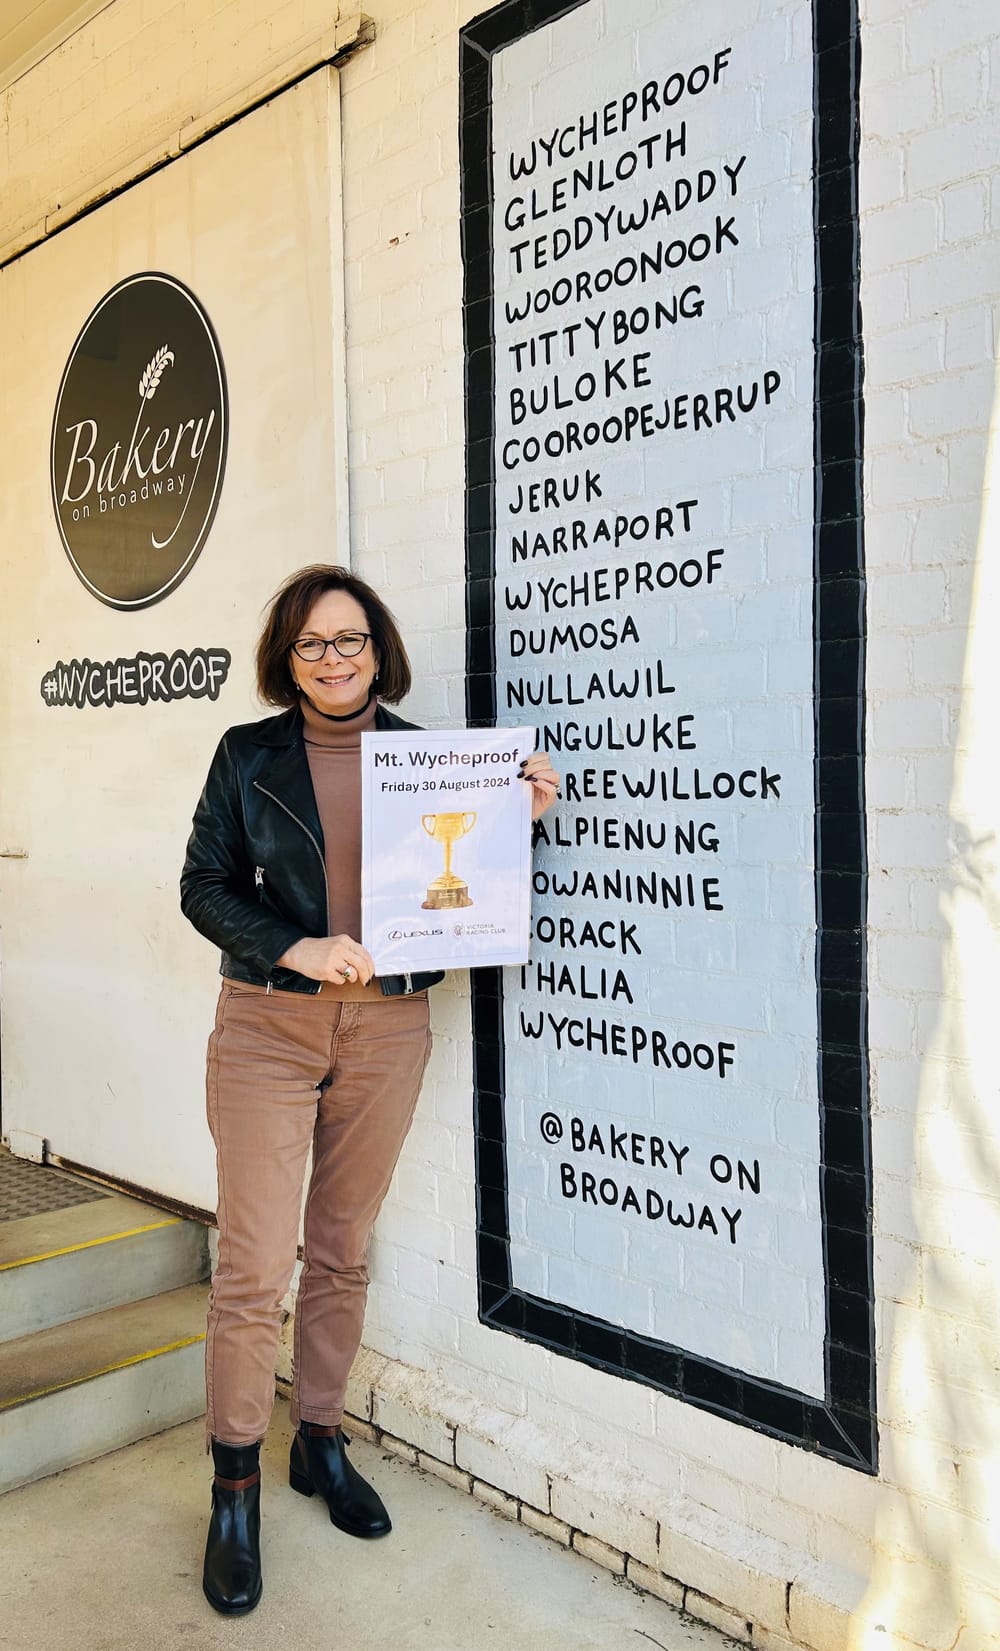 Bakery
on broadway
#WYCHEPROOF
Mt. Wycheproof
Friday 30 August 2024
LEXUS
VICTORIA
RACING CLUB
WYCHEPROOF
GLENLOTH
TEDDYWADDY
WOOROONOOK
TITTYBONG
BULOKE
COOROOPEJERRUP
JERUK
NARRAPORT
WYCHEPROOF
DUMOSA
NULLAWIL
UNGULUKE
REEWILLOCK
ALPIENUNG
OWANINNIE
CORACK
THALIA
WYCHEPROOF
@ BAKERY ON
BROADWAY